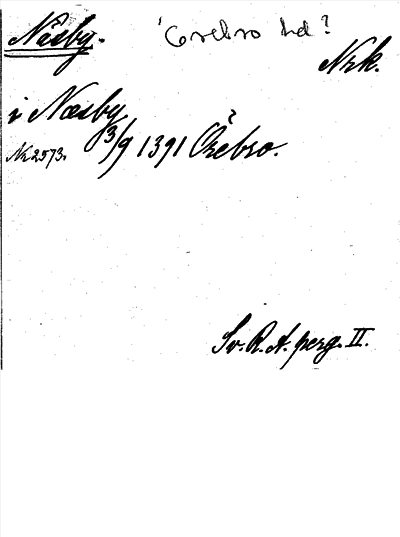 Näsby. Örebro hd?
Nrk.
i Næsby
Nr 2573. 3/9 1391 Örebro.
Sv. R. A. perg. II.